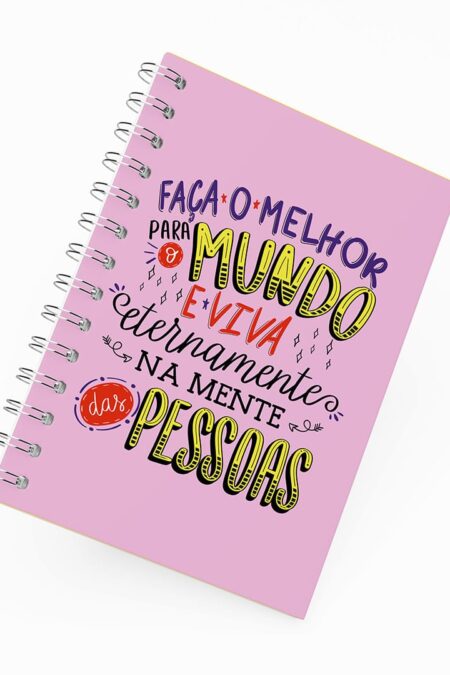 FAÇA O MELHOR
PARA o MUNDO
E VIVA
eternamente
NA MENTE
das PESSOAS